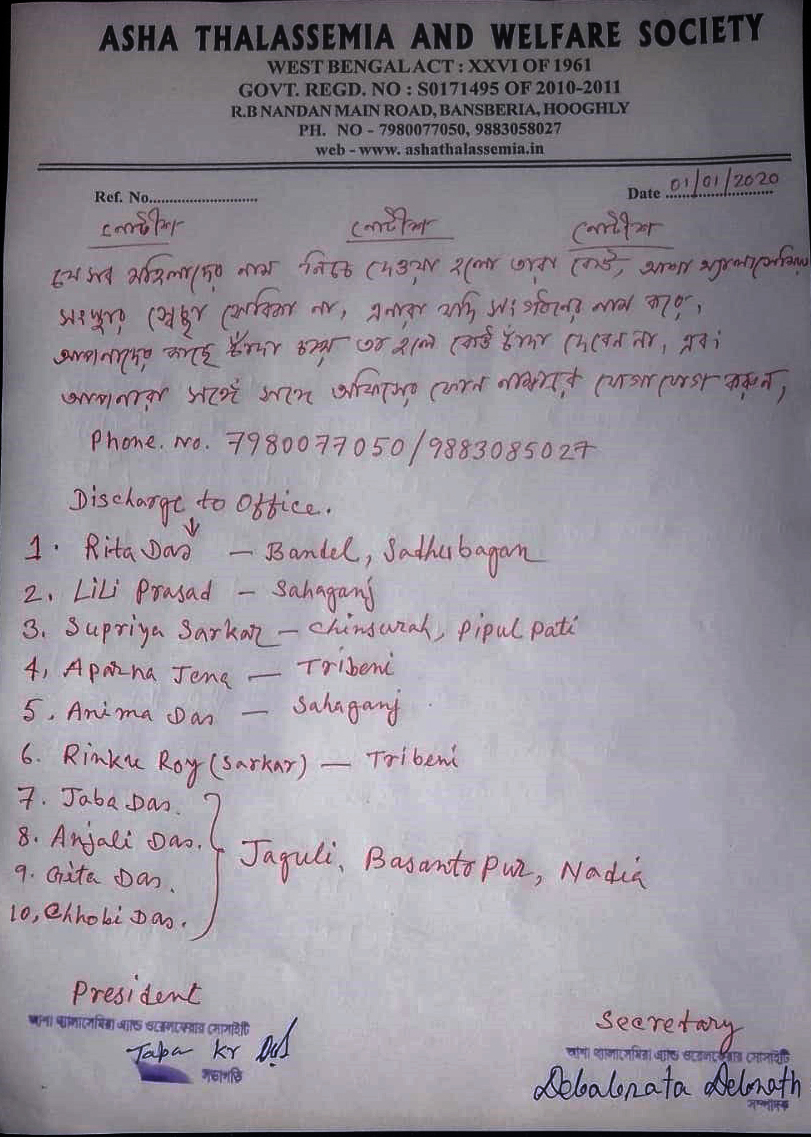 ASHA THALASSEMIA AND WELFARE SOCIETY
WEST BENGAL ACT : XXVI OF 1961
GOVT. REGD. NO : S0171495 OF 2010-2011
R.B NANDAN MAIN ROAD, BANSBERIA, HOOGHLY
PH. NO - 7980077050, 9883058027
web - www. ashathalassemia.in
Ref. No........................... Date 01/01/2020
নোটীশ নোটীশ নোটীশ
যে সব মহিলাদের নাম নিচে দেওয়া হলো তারা কেউ, আশা থ্যালাসেমিয়া
সংস্থার স্বেচ্ছা সেবিকা না, এনারা যদি সংগঠনের নাম করে,
আপনাদের কাছে চাঁদা চায় তা হলে কেউ চাঁদা দেবেন না, এবং
আপনারা সঙ্গে সঙ্গে অফিসের ফোন নাম্বারে যোগাযোগ করুন,
Phone. No. 7980077050/9883085027
Discharge to Office.
1. Rita Das - Bandel, Sadhubagan
2. Lili Prasad - Sahaganj
3. Supriya Sarkar - Chinsurah, Pipul Pati
4, Aparna Jena - Tribeni
5. Anima Das - Sahaganj
6. Rinku Roy (Sarkar) - Tribeni
7. Jaba Das.
8. Anjali Das.
Jaguli, Basantopur, Nadia
9. Gita Das.
10, Chhobi Das.
President
আশা থ্যালাসেমিয়া এ্যান্ড ওয়েলফেয়ার সোসাইটি
Tapa kr Das
সভাপতি
Secretary
আশা থ্যালাসেমিয়া এ্যান্ড ওয়েলফেয়ার সোসাইটি
Debabrata Debnath
সম্পাদক